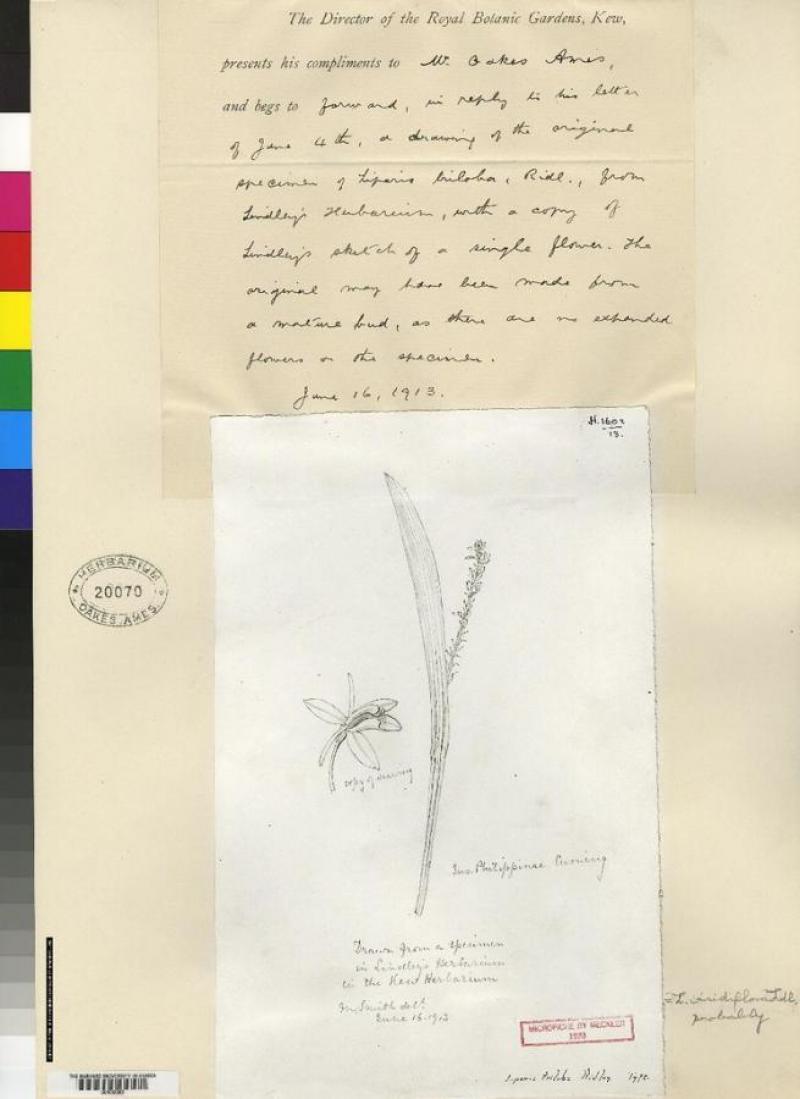 The Director of the Royal Botanic Gardens, Kew,
presents his compliments to Mr. Oakes Ames,
and begs to forward, in reply to his letter
of June 4th, a drawing of the original
specimen of Liparis biloba, Ridl., from
Lindley's Herbarium, with a copy of
Lindley's sketch of a single flower. The
original may have been made from
a mature bud, as there are no expanded
flowers on the specimen.
June 16, 1913.
H. 1602
13.
HERBARIUM
20070
OAKES AMES
copy of drawing
Ins. Philippinae Cuming
Drawn from a specimen
in Lindley's Herbarium
in the Kew Herbarium
M. Smith delt.
June 16. 1913
= L. viridiflora Lindl.
probably
MICROFICHE BY MECKLER
Liparis biloba Ridley Type
THE HARVARD UNIVERSITY HERBARIA